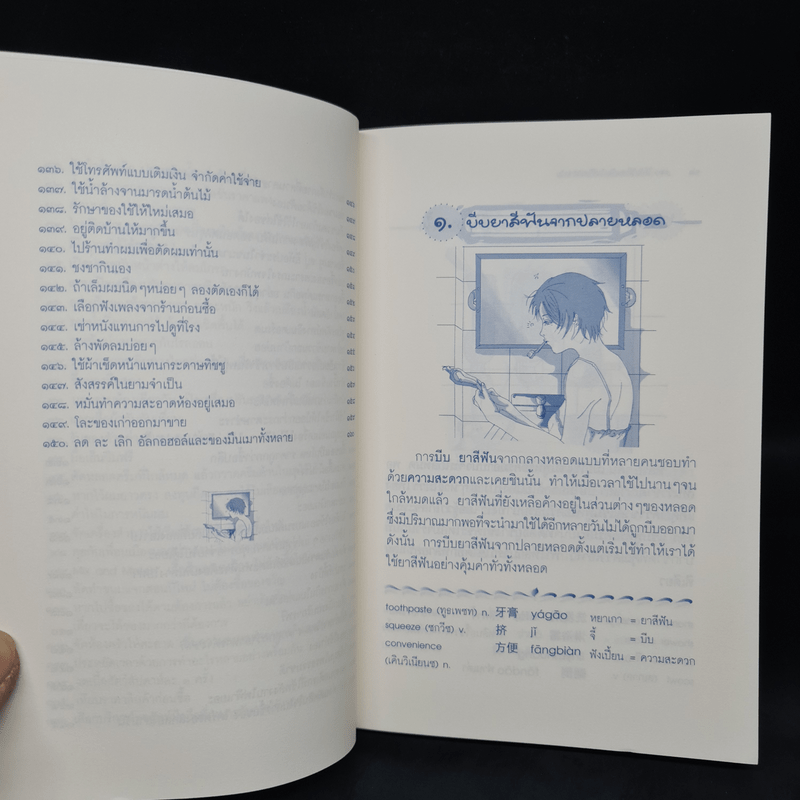 ๑๓๖. ใช้โทรศัพท์แบบเติมเงิน จำกัดค่าใช้จ่าย
๑๓๗. ใช้น้ำล้างจานมารดน้ำต้นไม้
๑๓๘. รักษาของใช้ให้ใหม่เสมอ
๑๓๙. อยู่ติดบ้านให้มากขึ้น
๑๔๐. ไปร้านทำผมเพื่อตัดผมเท่านั้น
๑๔๑. ชงชากินเอง
๑๔๒. ถ้าเล็มผมนิดๆหน่อยๆ ลองตัดเองก็ได้
๑๔๓. เลือกฟังเพลงจากร้านก่อนซื้อ
๑๔๔. เช่าหนังแทนการไปดูที่โรง
๑๔๕. ล้างพัดลมบ่อยๆ
๑๔๖. ใช้ผ้าเช็ดหน้าแทนกระดาษทิชชู
๑๔๗. สังสรรค์ในยามจำเป็น
๑๔๘. หมั่นทำความสะอาดห้องอยู่เสมอ
๑๔๙. โละของเก่าออกมาขาย
๑๕๐. ลด ละ เลิก อัลกอฮอล์และของมึนเมาทั้งหลาย
๑. บีบยาสีฟันจากปลายหลอด
การบีบ ยาสีฟันจากกลางหลอดแบบที่หลายคนชอบทำ
ด้วยความสะดวกและเคยชินนั้น ทำให้เมื่อเวลาใช้ไปนานๆจน
ใกล้หมดแล้ว ยาสีฟันที่ยังเหลือค้างอยู่ในส่วนต่างๆของหลอด
ซึ่งมีปริมาณมากพอที่จะนำมาใช้ได้อีกหลายวันไม่ได้ถูกบีบออกมา
ดังนั้น การบีบยาสีฟันจากปลายหลอดตั้งแต่เริ่มใช้ทำให้เราได้
ใช้ยาสีฟันอย่างคุ้มค่าทั่วทั้งหลอด
toothpaste (ทูธเพซท) n. 牙膏 yágāo หยาเกา = ยาสีฟัน
squeeze (ซกวีซ) v. 挤 jǐ จี้ = บีบ
convenience 方便 fāngbiàn ฟังเปี้ยน = ความสะดวก
(เคินวีเนียนซ) n.